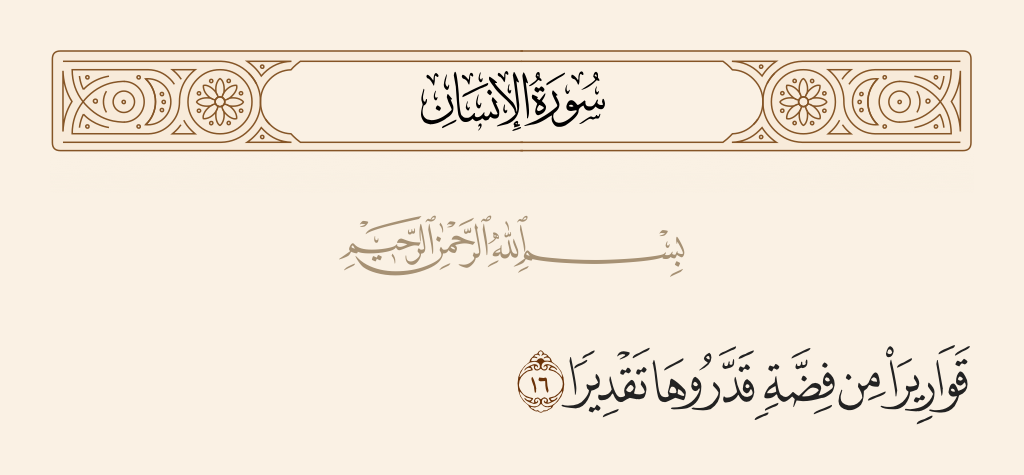 سُورَةُ الإِنسَانِ
بِسْمِ ٱللَّهِ ٱلرَّحْمَٰنِ ٱلرَّحِيمِ
قَوَارِيرَا۟ مِن فِضَّةٍ قَدَّرُوهَا تَقْدِيرًا ١٦